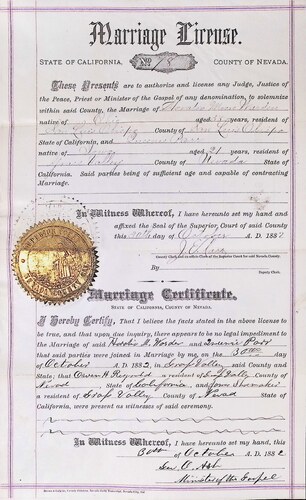 Marriage License.
STATE OF CALIFORNIA, No. 78 COUNTY OF NEVADA.
These Presents are to authorize and license any Judge, Justice of
the Peace, Priest or Minister of the Gospel of any denomination, to solemnize
within said County, the Marriage of Horatio Moore Warden
native of aged resident of
San Luis Obispo County of San Luis Obispo
State of California, and
native of aged 21 years, resident of
Grass Valley County of Nevada State of
California. Said parties being of sufficient age and capable of contracting
Marriage.
In Witness Whereof, I have hereunto set my hand and
affixed the Seal of the Superior Court of said County
this 30th day of October A. D. 1882
County Clerk and ex-officio Clerk of the Superior Court for said Nevada County.
By
Deputy Clerk.
Marriage Certificate.
STATE OF CALIFORNIA, COUNTY OF NEVADA.
I Hereby Certify, That I believe the facts stated in the above license
to be true, and that upon due inquiry, there appears to be no legal impediment
to the Marriage of said Horatio M. Warden and Queenie Parr
that said parties were joined in Marriage by me, on the 30th day
of October A. D. 1882, in Grass Valley said County and
State; that Owen H. Reynolds a resident of Grass Valley County of
Nevada, State of California, and Jane Shoemaker
a resident of Grass Valley County of Nevada State of
California, were present as witnesses of said ceremony.
In Witness Whereof, I have hereunto set my hand, this
30th October A. D. 1882
Geo. O. Ash
Minister of the Gospel